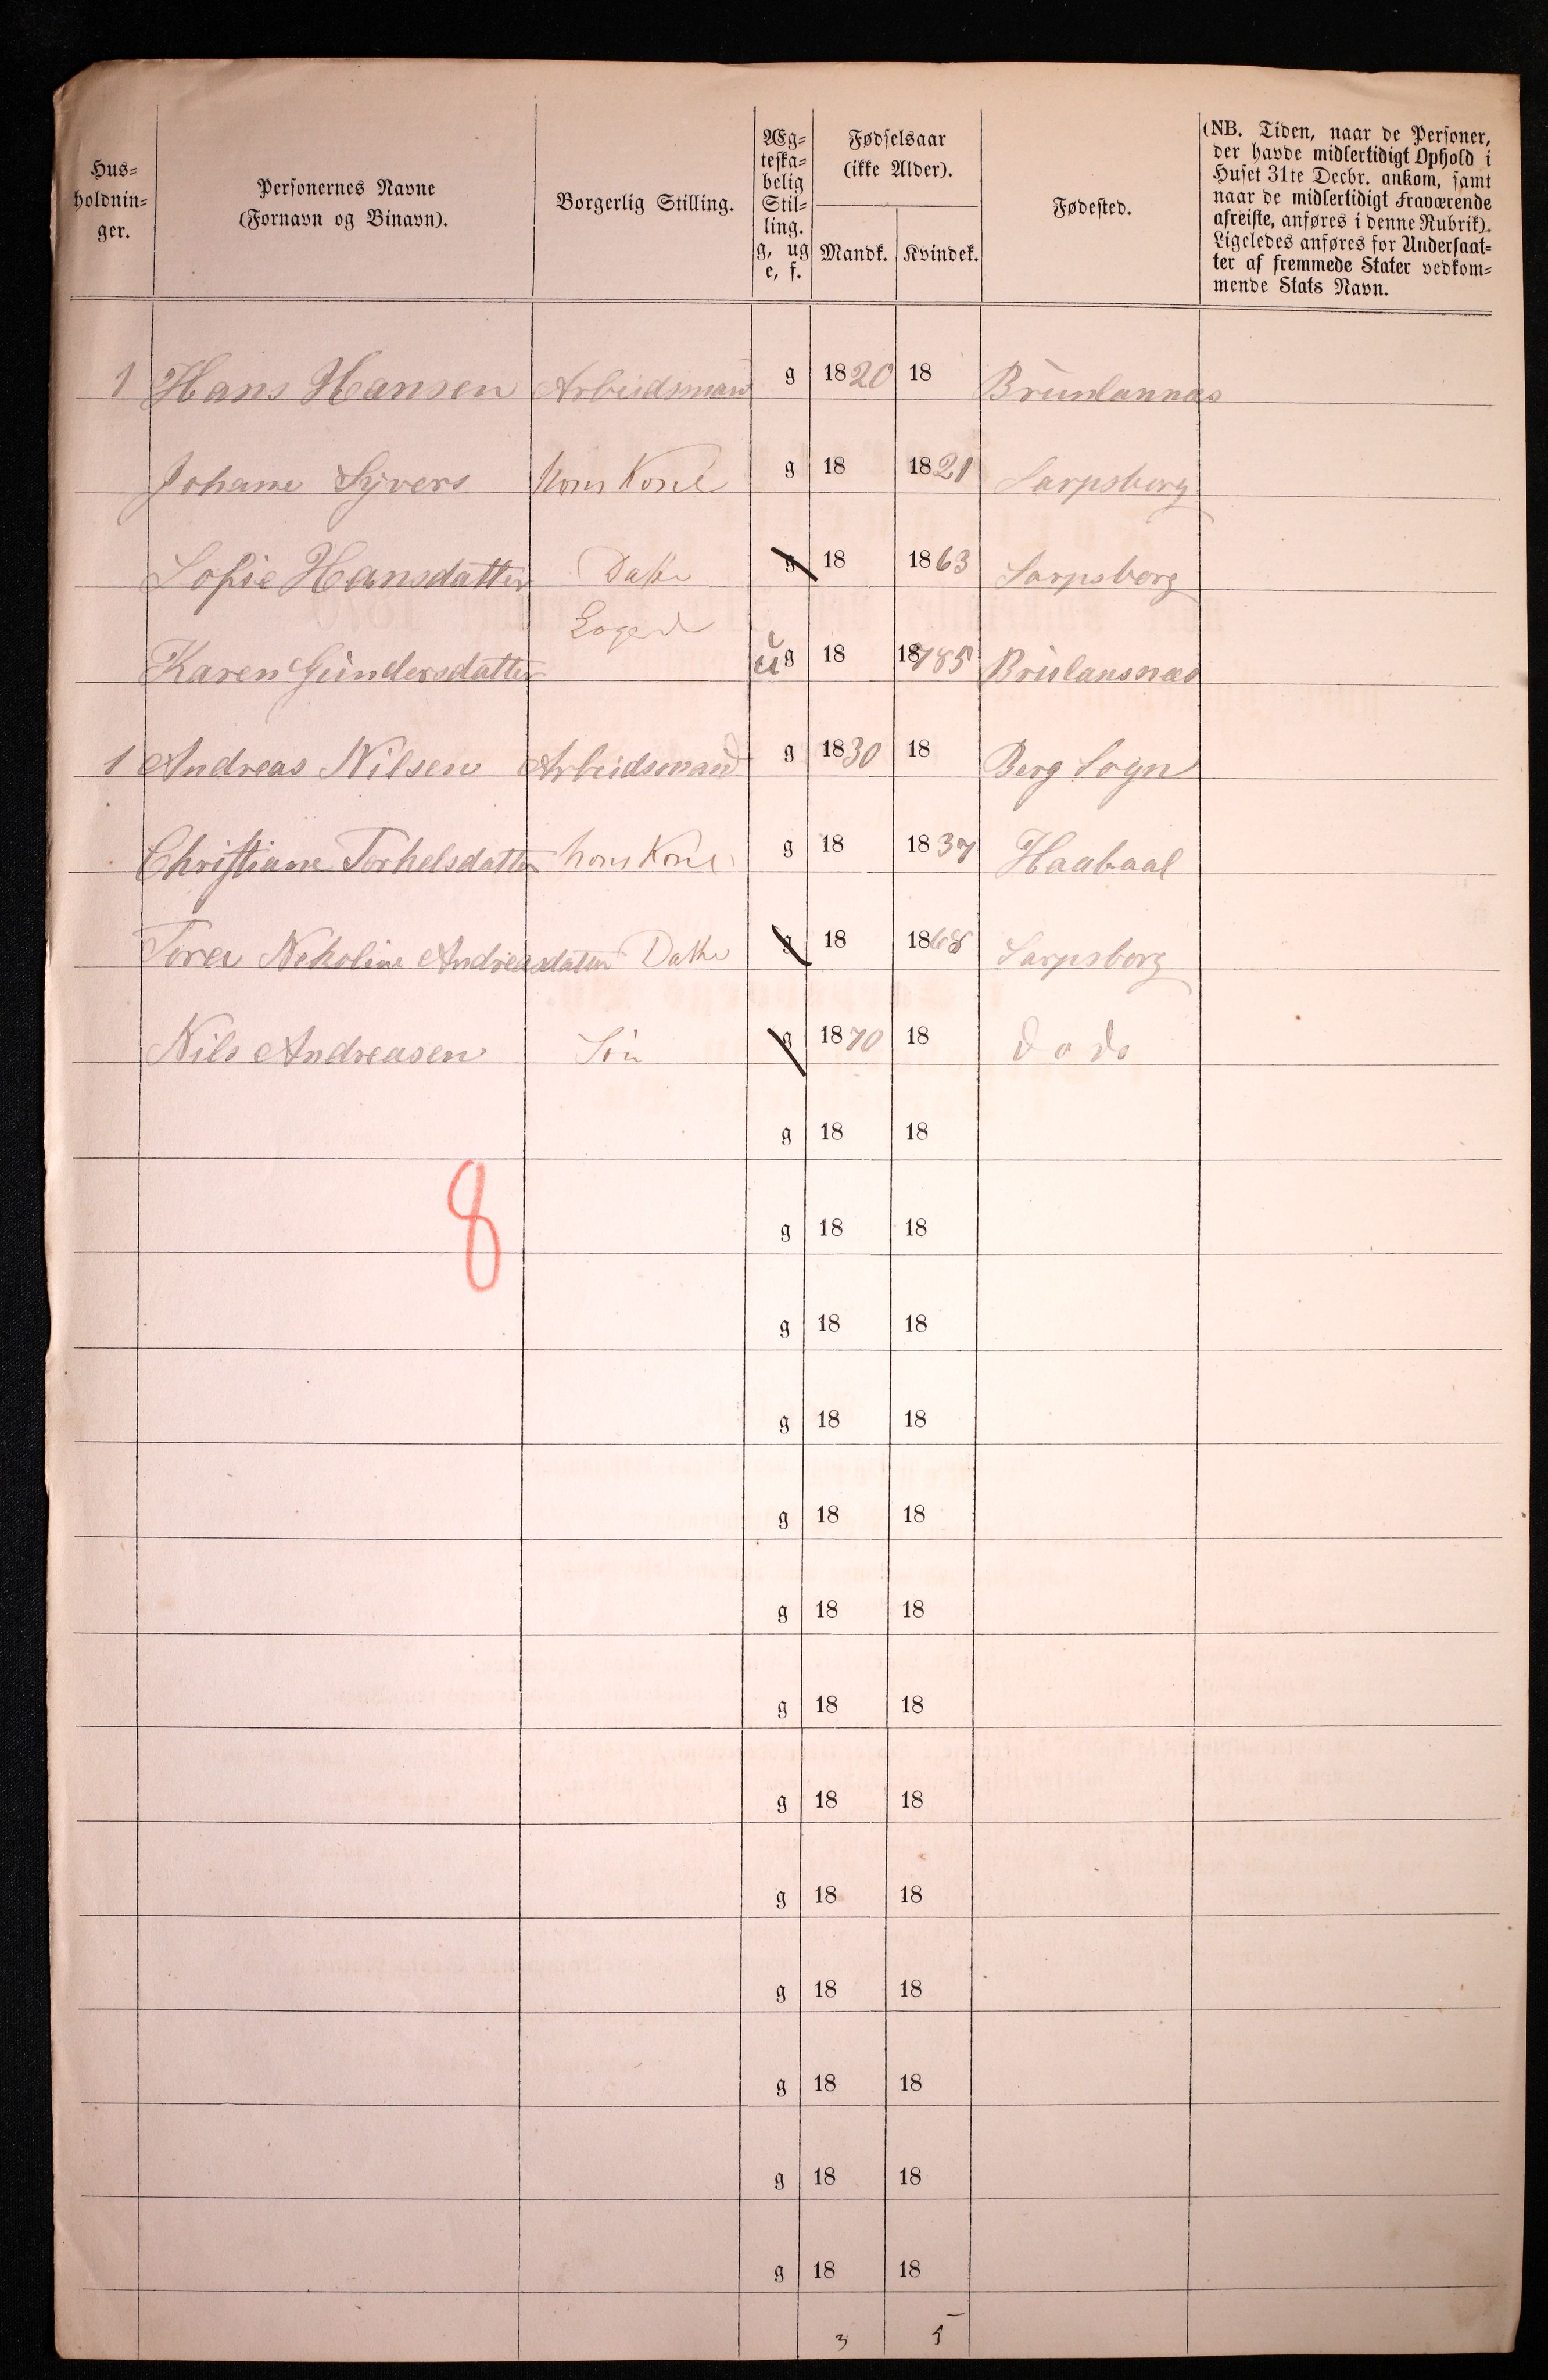 Hus=
holdnin=
ger.
Personernes Navne
(Fornavn og Binavn).
Borgerlig Stilling.
Æg=
teska=
belig
Stil=
ling.
g, ug
e, f.
Fødselsaar
(ikke Alder).
Mandk. Kvindek.
Fødested.
(NB. Tiden, naar de Personer,
der havde midlertidigt Ophold i
Huset 31te Decbr. ankom, samt
naar de midlertidigt Fraværende
afreiste, anføres i denne Rubrik).
Ligeledes anføres for Undersaat=
ter af fremmede Stater vedkom=
mende Stats Navn.
1 Hans Hansen Arbeidsman g 1820 18 Brunlannæs
Johane Syvers hans Kone g 18 1821 Sarpsborg
Sofie Hansdatter Datter g 18 1863 Sarpsborg
Logerende
Karen Gundersdatter ug 18 1785 Brulansnæs
1 Andreas Nilsen Arbeidsmand g 1830 18 Berg Sogn
Christiane Torkelsdatter hans Kone g 18 1837 Haabaal
Nekoline Andreasdatter Datter g 18 1868 Sarpsborg
Nils Andreasen Søn g 1870 18 do do
g 18 18
8
g 18 18
g 18 18
g 18 18
g 18 18
g 18 18
g 18 18
g 18 18
g 18 18
g 18 18
g 18 18
g 18 18
g 18 18
3 5